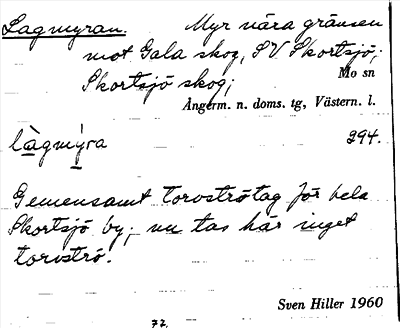 Lagmyran. Myr nära gränsen
mot Gala skog, SV. Skortsjö;
Skortsjö skog; Mo sn
Ångerm. n. doms. tg, Västern. l.
làgmýra 394.
Gemensamt torvströtag för hela
Skortsjö by; nu tas här inget
torvströ.
Sven Hiller 1960
72.